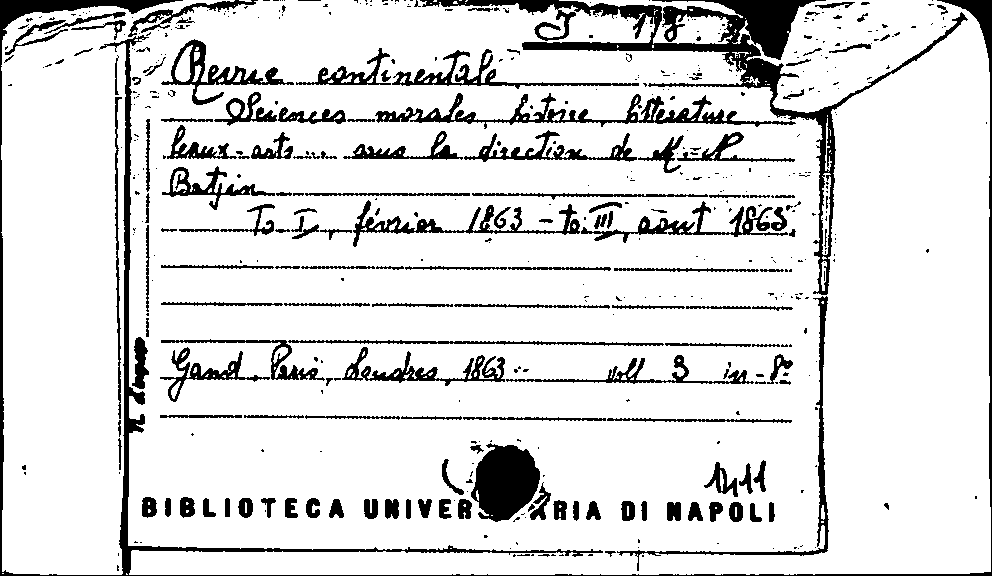 J. 118.
Revue continentale
Sciences morales, histoire, littérature,
beaux-arts... sous la direction de M.-N.
Batjin
To. I, février 1863 - to. III, aout 1863.
Gand, Paris, Londres, 1863.. voll 3 in-8º
N. d'ingr
1411
BIBLIOTECA UNIVERSITARIA DI NAPOLI